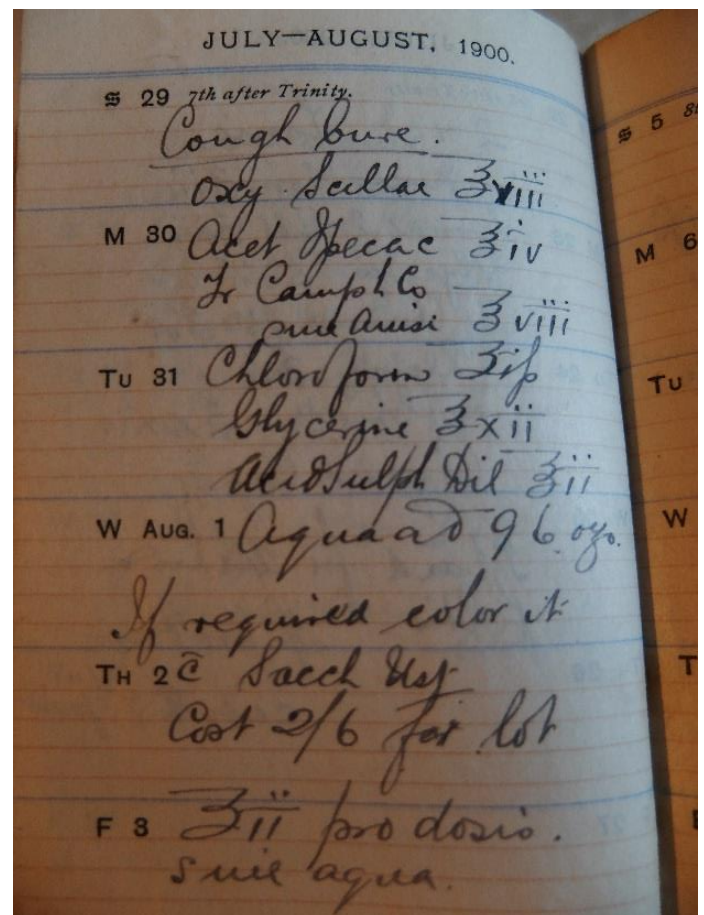 JULY—AUGUST, 1900.
S 29 7th after Trinity.
Cough Cure.
Oxy Scillae ℥xviii
M 30 Acet Ipecac ℥iv
Tr Camph Co
sine Anisi ℥viii
Tu 31 Chloroform ʒiſs
Glycerine ℥xii
Acid Sulph Dil ℥ii
W Aug. 1 Aqua ad 96 ozs.
If required color it
Th 2 c̄ Sacch Ust
Cost 2/6 for lot
F 3 ʒii pro dosis.
sine aqua.
S 5 8
M 6
Tu
W
T